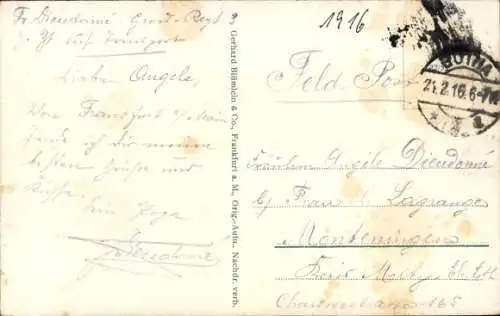 1916
Fr. Dieudonné
z. Zt. auf Transport
Liebe Angele
Von Frankfurt a/Main
sende ich dir meine
besten Grüße und
Küsse.
Dieudonné
Gerhard Blümlein & Co., Frankfurt a. M., Orig.-Aufn., Nachdr. verb.
Feld Post
GOTHA
21.2.16.6-7
Fräulein Angele Dieudonné
b/ Frau Lagrange
Monteningen
Kreis Metz
165